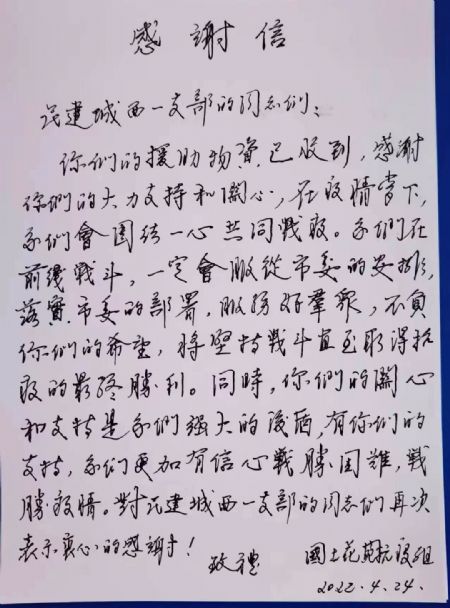 感謝信
民建城西一支部的同志們：
你们的援助物資已收到，感謝
你們的大力支持和關心，在疫情當下，
我们會團结一心共同戰疫。我們在
前綫戰斗，一定會服從市委的安排，
落實市委的部署，服務好羣衆，不負
你们的希望，将堅持戰斗直至取得抗
疫的最終勝利。同時，你们的關心
和支持是我們强大的後盾，有你们的
支持，我们更加有信心戰勝困難，戰
勝疫情。對民建城西一支部的同志们再次
表示衷心的感謝！
致禮 國土花苑抗疫组
2022.4.24.